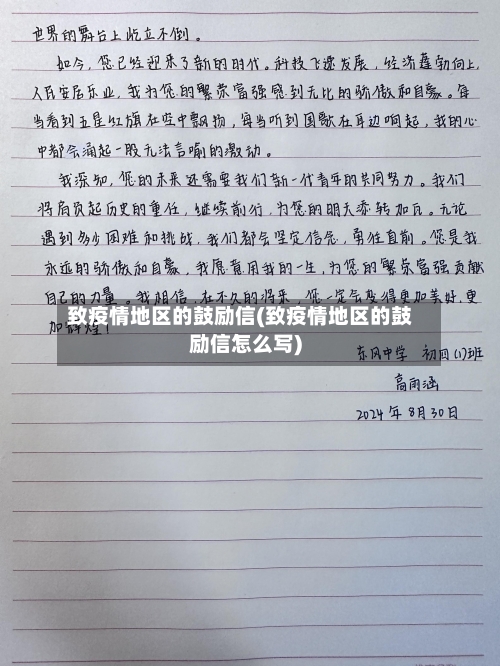 世界的舞台上屹立不倒。
如今,您已经迎来了新的时代。科技飞速发展,经济蓬勃向上,
人民安居乐业,我为您的繁荣富强感到无比的骄傲和自豪。每
当看到五星红旗在空中飘扬,每当听到国歌在耳边响起,我的心
中都会涌起一股无法言喻的激动。
我深知,您的未来还需要我们新一代青年的共同努力。我们
将肩负起历史的重任,继续前行,为您的明天添转加瓦。无论
遇到多少困难和挑战,我们都会坚定信念,勇往直前。您是我
永远的骄傲和自豪,我愿意用我的一生,为您的繁荣富强贡献
自己的力量。我相信,在不久的将来,您一定会变得更加美好,更
加辉煌!
致疫情地区的鼓励信(致疫情地区的鼓
励信怎么写)
东风中学 初四(1)班
高雨涵
2024年8月30日